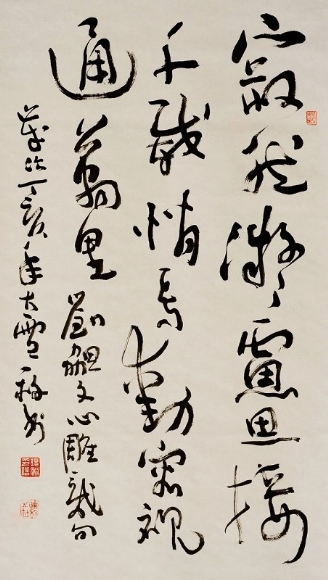 寂然凝慮思接
千載悄焉動容視
通萬里 劉勰文心雕龍句
歲次丁亥年大雪